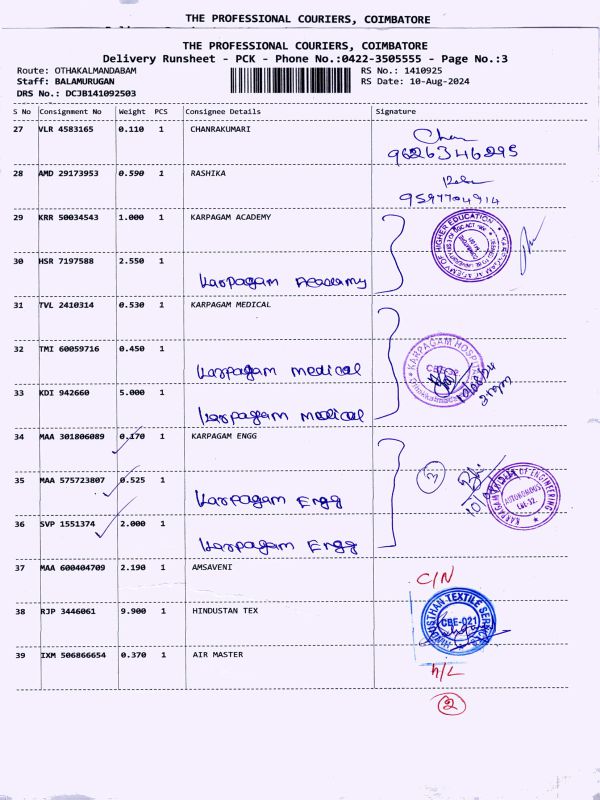 THE PROFESSIONAL COURIERS, COIMBATORE
THE PROFESSIONAL COURIERS, COIMBATORE
Delivery Runsheet - PCK - Phone No.:0422-3505555 - Page No.:3
Route: OTHAKALMANDABAM RS No.: 1410925
Staff: BALAMURUGAN RS Date: 10-Aug-2024
DRS No.: DCJB141092503
S No Consignment No Weight PCS Consignee Details Signature
27 VLR 4583165 0.110 1 CHANRAKUMARI
9626346295
28 AMD 29173953 0.590 1 RASHIKA
9597704914
29 KRR 50034543 1.000 1 KARPAGAM ACADEMY
30 HSR 7197588 2.550 1
Karpagam Academy
31 TVL 2410314 0.530 1 KARPAGAM MEDICAL
32 TMI 60059716 0.450 1
Karpagam medical
KARPAGAM HOSPITAL
33 KDI 942660 5.000 1
Karpagam medical
34 MAA 301806089 0.170 1 KARPAGAM ENGG
35 MAA 575723807 0.525 1
Karpagam Engg
3
AUTONOMOUS
36 SVP 1551374 2.000 1
Karpagam Engg
37 MAA 600404709 2.190 1 AMSAVENI
C/N
38 RJP 3446061 9.900 1 HINDUSTAN TEX
HINDUSTHAN TEXTILE SERVICES
CBE-021
39 IXM 506866654 0.370 1 AIR MASTER
h/L
2